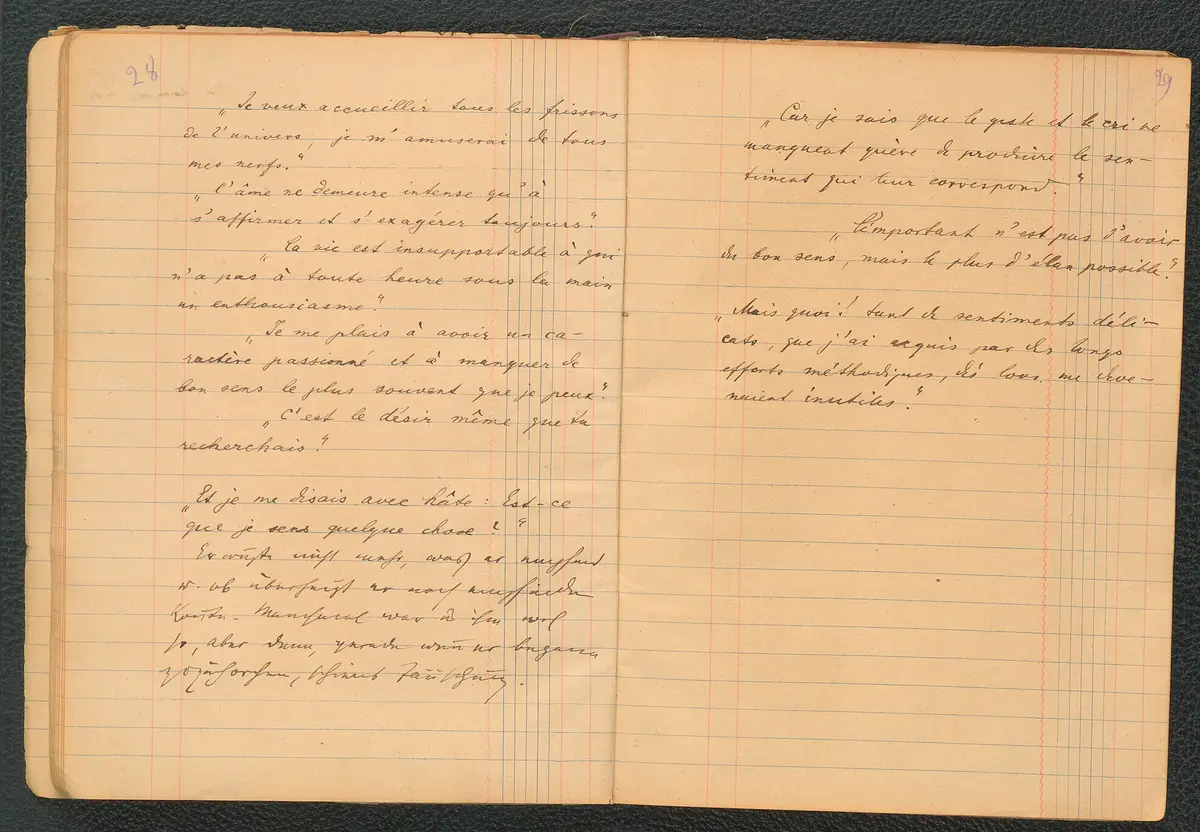 28
„Je veux accueillir tous les frissons
de l'univers, je m'amuserai de tous
mes nerfs.“
„L'âme ne demeure intense qu'à
s'affirmer et s'exagérer toujours“.
„La vie est insupportable à qui
n'a pas à toute heure sous la main
un enthousiasme“.
„Je me plais à avoir un ca-
ractère passionné et à manquer de
bon sens le plus souvent que je peux“.
„C'est le désir même que tu
recherchais“.
„Et je me disais avec hâte: Est-ce
que je sens quelque chose?“
Er wußte nicht mehr, was er empfand
u. ob überhaupt er noch empfinden
konnte. Manchmal war es ihm wol
so, aber dann, gerade wenn er begann
zuzuhorchen, schien's Täuschung.
29
„Car je sais que le geste et le cri ne
manquent guère de produire le sen-
timent qui leur correspond.“
„L'important n'est pas d'avoir
du bon sens, mais le plus d'élan possible“.
„Mais quoi! tant de sentiments déli-
cats, que j'ai acquis par des longs
efforts méthodiques, dès lors me deve-
naient inutiles“.